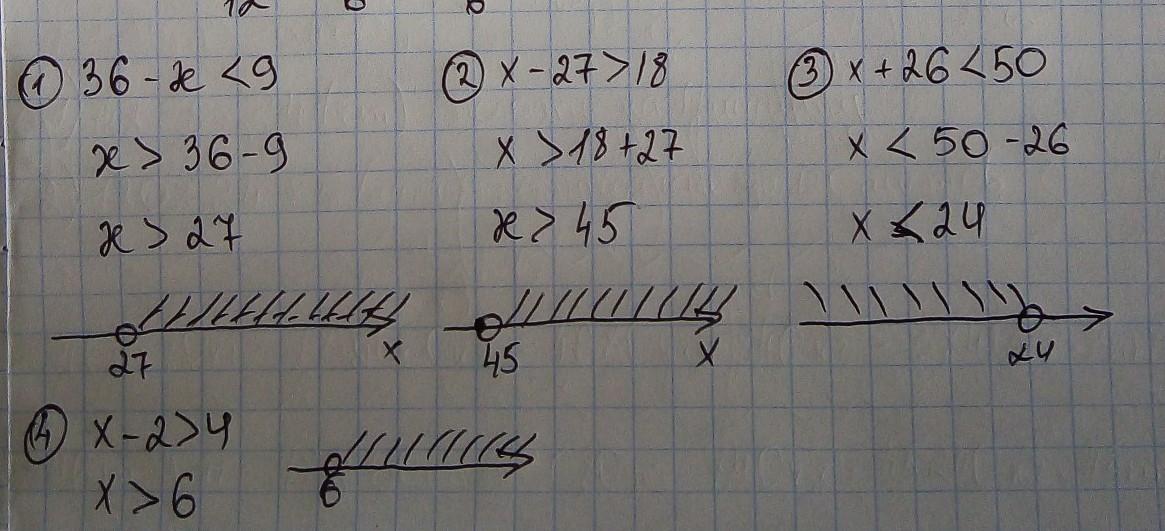 12 6 6
① 36 - x < 9
x > 36 - 9
x > 27
27 x
② x - 27 > 18
x > 18 + 27
x > 45
45 x
③ x + 26 < 50
x < 50 - 26
x < 24
24
④ x - 2 > 4
x > 6
6